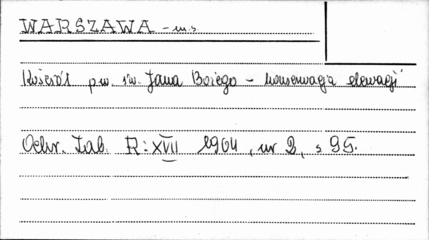 WARSZAWA - m.s
Kościół p.w. św. Jana Bożego - konserwacja elewacji
Ochr. Zab. R: XVII 1964, nr 2, s 95.